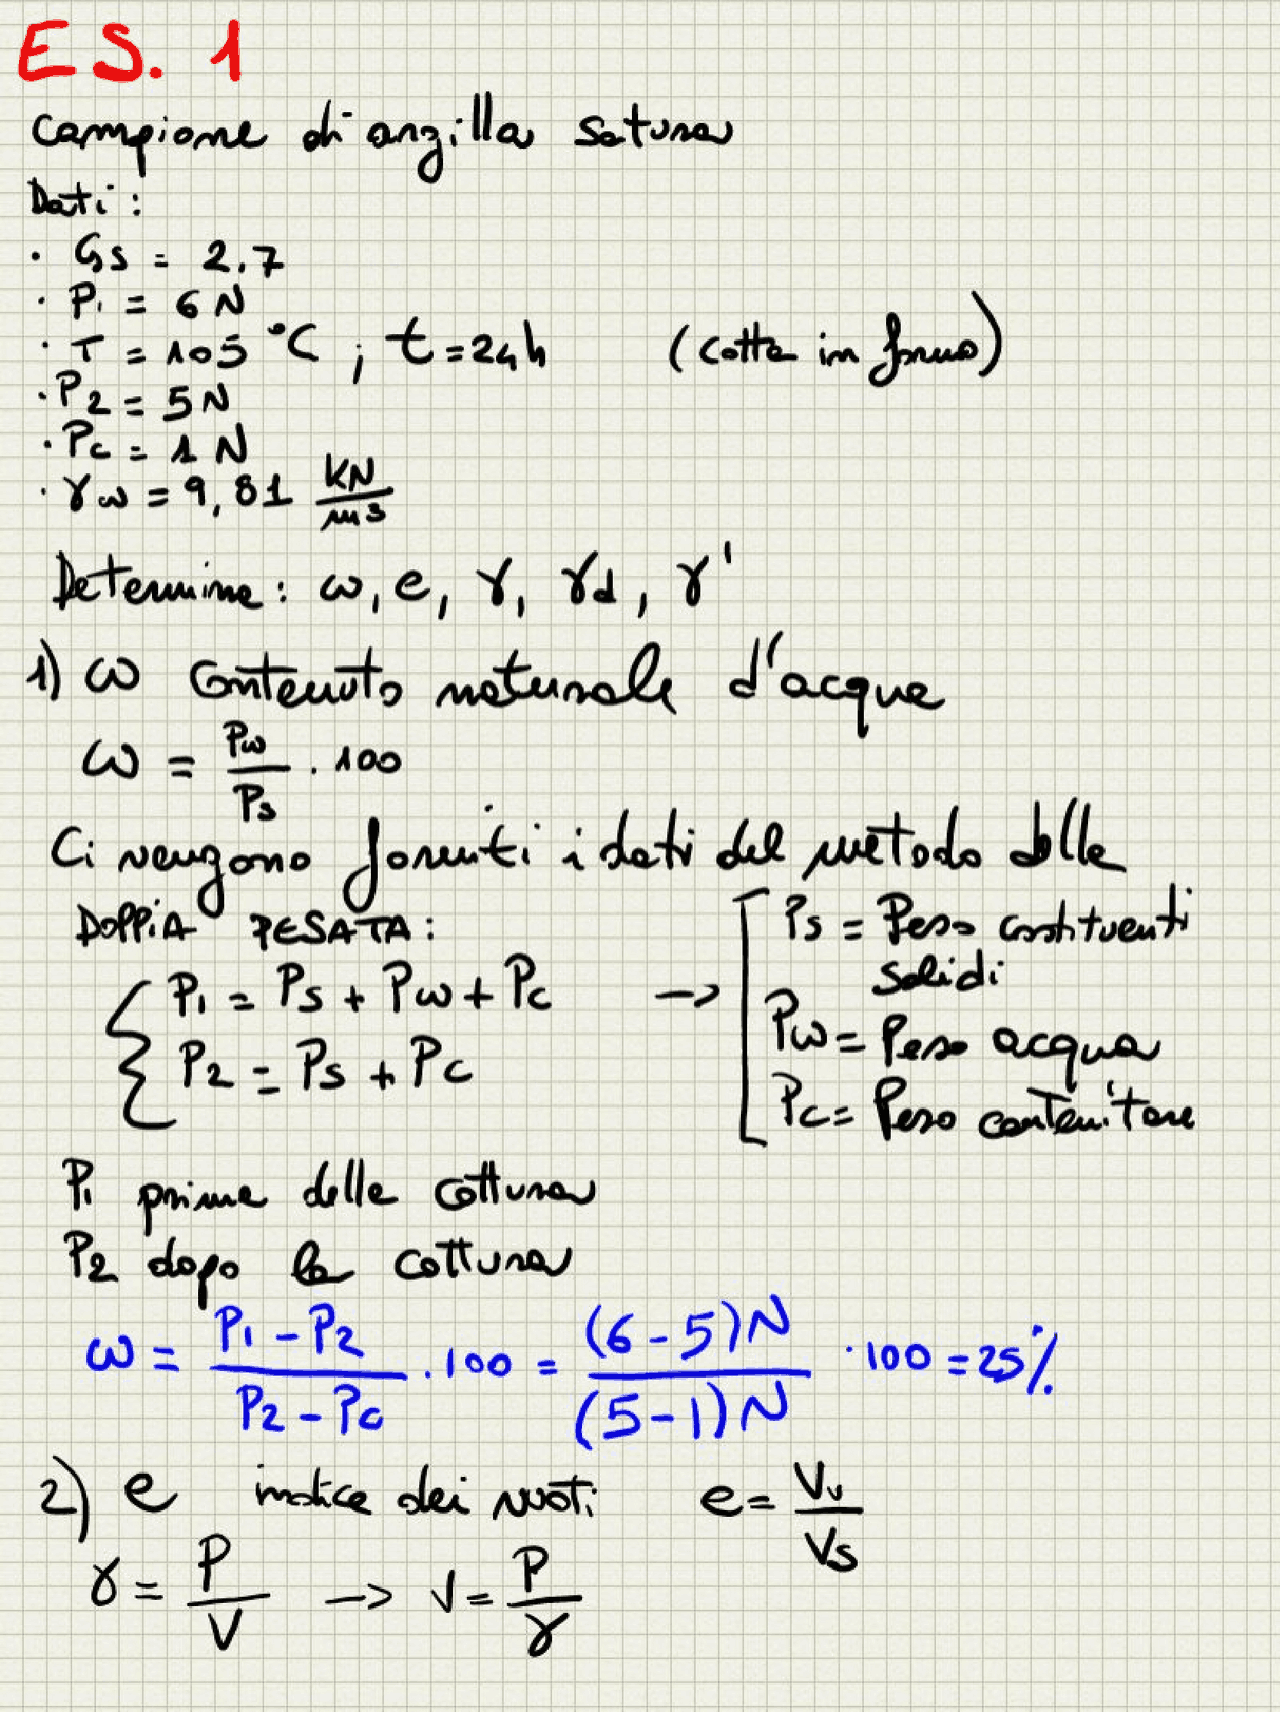 ES. 1
Campione di argilla satura
Dati:
· Gs = 2.7
· P1 = 6 N
· T = 105 °C ; t = 24h (cotta in forno)
· P2 = 5 N
· Pc = 1 N
· γw = 9,81 kN/m³
Determina: ω, e, γ, γd, γ'
1) ω Contenuto naturale d'acqua
ω = Pw/Ps · 100
Ci vengono forniti i dati del metodo della
DOPPIA PESATA:
{ P1 = Ps + Pw + Pc
P2 = Ps + Pc
→ [ Ps = Peso costituenti
solidi
Pw = Peso acqua
Pc = Peso contenitore
P1 prima della cottura
P2 dopo la cottura
ω = P1 - P2 / P2 - Pc · 100 = (6-5)N / (5-1)N · 100 = 25%
2) e indice dei vuoti e = Vv/Vs
γ = P/V → V = P/γ